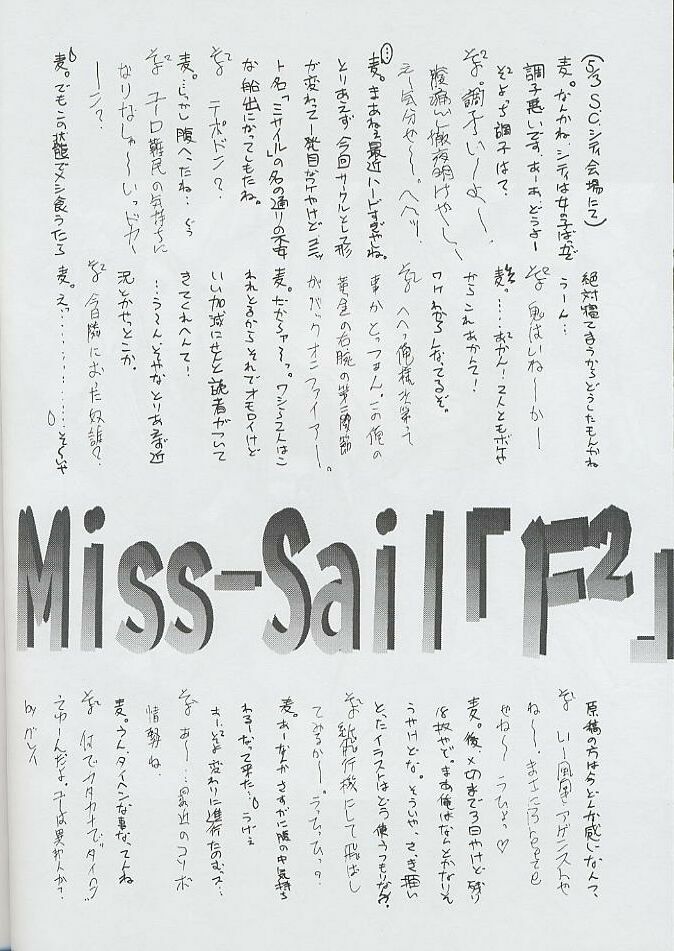 (5/3 S.C.シティ会場にて)
麦。なんかね、シティは女の子ばっかで
調子悪いです。あーあ、どうよー
そよっち調子は?
そよ 調子い〜よ〜、
腹痛いし徹夜明けやしー
え〜気分せ〜。へへっ!
麦。まあねぇ最近ハードすぎやね。
とりあえず今回サークルとして形
が変わって一発目なワケやけど、
ト名「ミサイル」の名の通りの不安
な船出になってしもたね。
そよ テポドン?
麦。…しかし腹へったね…
そよ ユーロ難民の気持ちに
なりなしゃ〜いっドカ
ーン?
麦。でもこの状態でメシ食うたら
絶対寝てまうからどうしたもんかね
うーん…
そよ 鬼はいね〜か〜
麦。……あかん!2人ともボケや
からこれあかんて!
ワケわからんなってるぞ。
そよ へへっ俺様
事かとっつぁん。この俺の
黄金の右腕の第三関節
がバックオニファイアー。
麦。だからァーっ。ワシら2人はこ
われとるからそれでオモロイけど
いい加減にせんと読者がついて
きてくれへんて!
…う〜んそやなとりあえず近
況とかやっとこか。
そよ 今日隣におった奴誰?
麦。え……………そ〜いや
Miss-Sail「F²」
原稿の方は今どんな感じなんて、
そよ い〜風アゲンストや
ね〜、まさにBreeze
やね〜うひょっ♡
麦。後、〆切まで3日やけど残り
18枚やで。まあ俺はなんとかなりそ
うやけどな。そういや、さっき描い
とったイラストはどう使うつもりなん?
そよ 紙飛行機にして飛ばし
てみるか〜。うひひっ?
麦。あーなんかさすがに腹の中気持ち
わるーなって来た…うげぇ
そよ変わりに進行たのむス…
そよ あ〜…最近のコソボ
情勢ね、
麦。うん、タイヘンな事なってんね
そよ 何でカタカナで"タイヘン"
てゆーんだよ、
by ガレイ